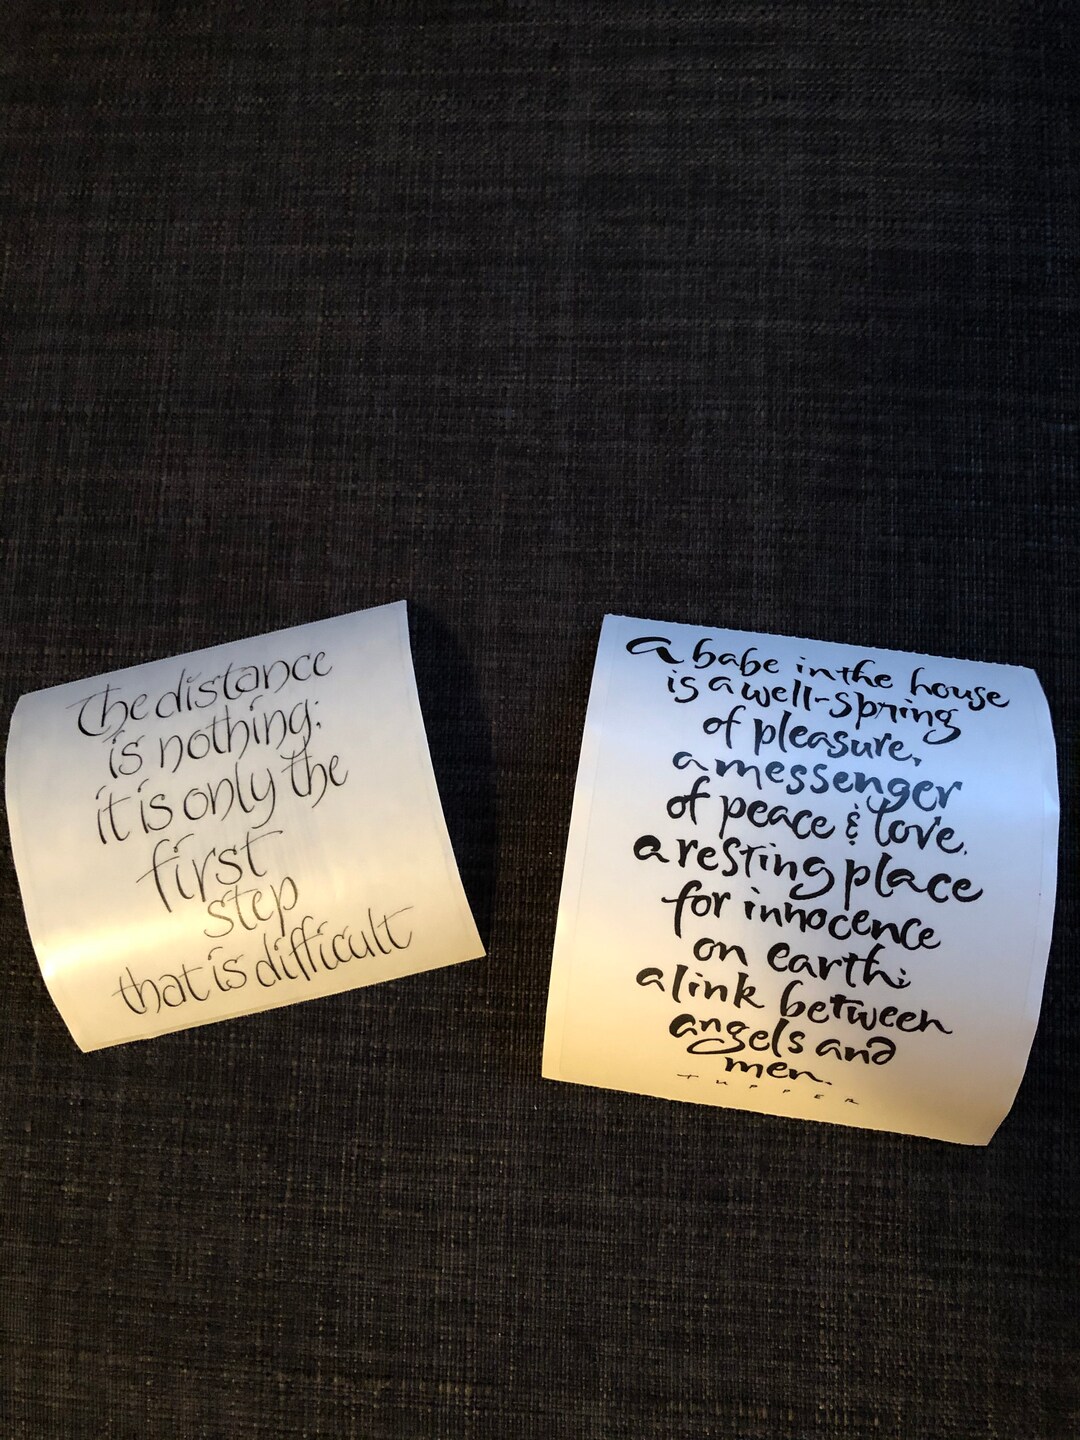 The distance
is nothing;
it is only the
first
step
that is difficult
a babe in the house
is a well-spring
of pleasure,
a messenger
of peace & love.
a resting place
for innocence
on earth;
a link between
angels and
men.
TUPPER